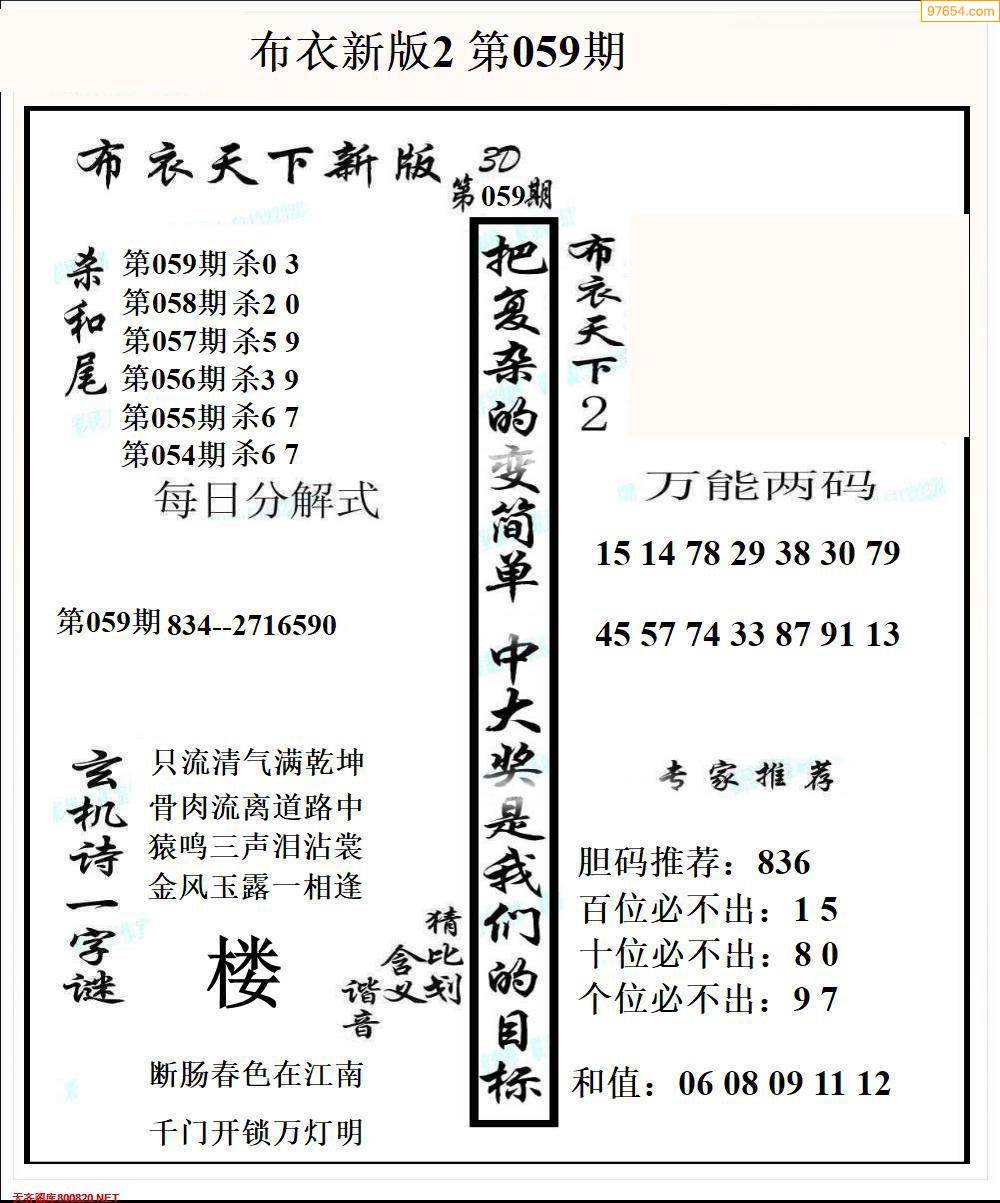 97654.com
布衣新版2 第059期
布衣天下新版 3D
第059期
杀和尾
第059期 杀0 3
第058期 杀2 0
第057期 杀5 9
第056期 杀3 9
第055期 杀6 7
第054期 杀6 7
每日分解式
第059期 834--2716590
玄机诗一字谜
只流清气满乾坤
骨肉流离道路中
猿鸣三声泪沾裳
金风玉露一相逢
楼
猜比划
含义
谐音
断肠春色在江南
千门开锁万灯明
把复杂的变简单 中大奖是我们的目标
布衣天下2
万能两码
15 14 78 29 38 30 79
45 57 74 33 87 91 13
专家推荐
胆码推荐：836
百位必不出：1 5
十位必不出：8 0
个位必不出：9 7
和值：06 08 09 11 12
天齐图库800820.NET